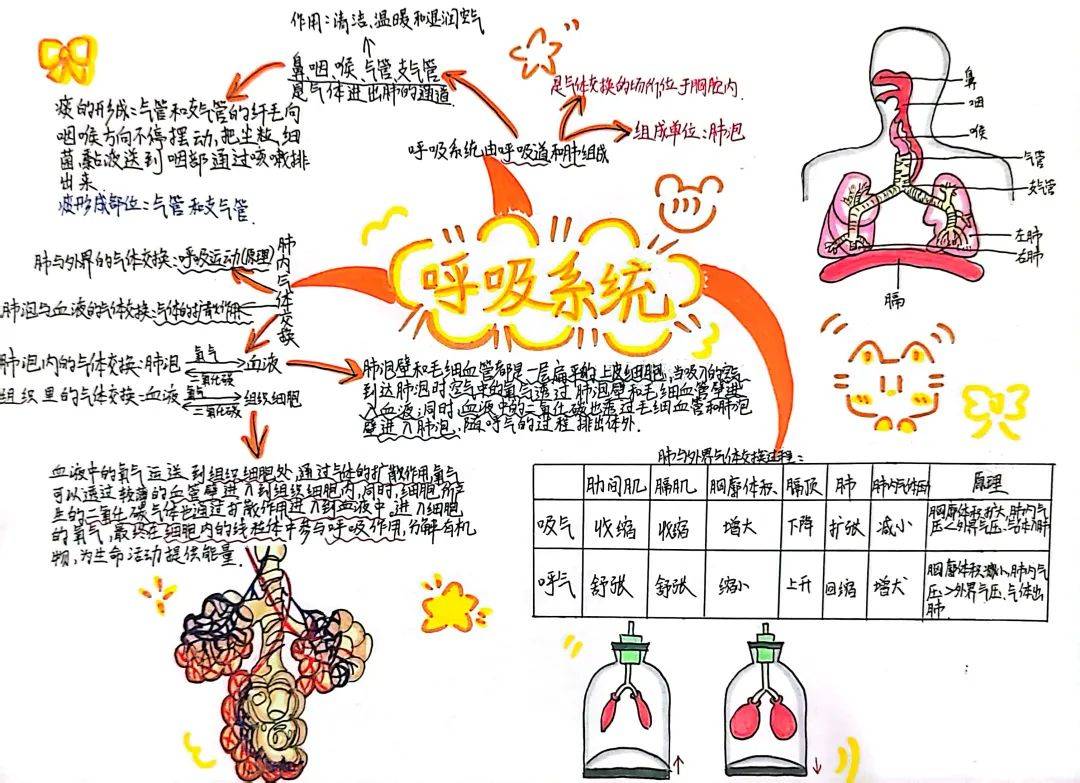 呼吸系统
作用:清洁、温暖和湿润空气
鼻、咽、喉、气管、支气管
是气体进出肺的通道.
是气体交换的场所位于胸腔内.
组成单位:肺泡
呼吸系统由呼吸道和肺组成
痰的形成:气管和支气管的纤毛向
咽喉方向不停摆动,把尘粒、细
菌、黏液送到咽部通过咳嗽排
出来.
痰形成部位:气管和支气管.
肺内气体交换
肺与外界的气体交换:呼吸运动(原理)
肺泡与血液的气体交换:气体的扩散作用
肺泡内的气体交换:肺泡 氧气 二氧化碳 血液
组织里的气体交换-血液 氧气 二氧化碳 组织细胞
肺泡壁和毛细血管都是一层扁平的上皮细胞,当吸入的空气
到达肺泡时空气中的氧气透过肺泡壁和毛细血管壁进
入血液;同时,血液中的二氧化碳也透过毛细血管和肺泡
壁进入肺泡,随呼气的过程排出体外.
血液中的氧气运送到组织细胞处,通过气体的扩散作用,氧气
可以透过较薄的血管壁进入到组织细胞内,同时,细胞所产
生的二氧化碳气体也通过扩散作用进入到血液中,进入细胞
的氧气,最终在细胞内的线粒体中参与呼吸作用,分解有机
物,为生命活动提供能量.
鼻
咽
喉
气管
支气管
左肺
右肺
膈
肺与外界气体交换过程:
肋间肌 膈肌 胸廓体积 膈顶 肺 肺内气体 原理
吸气 收缩 收缩 增大 下降 扩张 减小 胸廓体积扩大,肺内气
压<外界气压、气体入肺
呼气 舒张 舒张 缩小 上升 回缩 增大 胸廓体积减小,肺内气
压>外界气压、气体出
肺